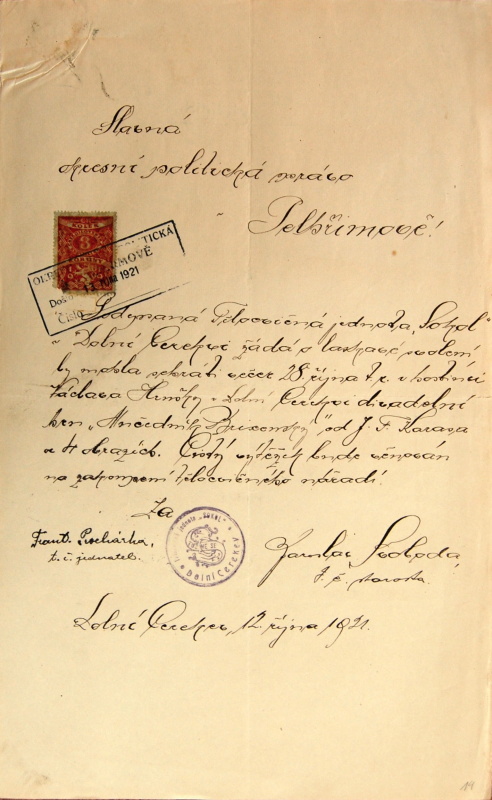 Slavná
okresní politická správo
v Pelhřimově!
KOLEK
8
POLITICKÁ
1921
Došlo
Číslo
Podepsaná Tělocvičná jednota „Sokol“
v Dolní Cerekvi žádá o laskavé svolení
by mohla sehráti večer 28. října t. r. v hostinci
Václava v Dolní Cerekvi divadelní
hru „Mučedník Brixenský“, od J. F. Karasa
o 4 obrazích. Čistý výtěžek bude věnován
na zakoupení tělocvičného nářadí.
Za
Frant.
t. č. jednatel.
"SOKOL"
v Dolní Cerekvi
Jaroslav Svoboda
t. č. starosta.
Dolní Cerekev, 12. října 1921.